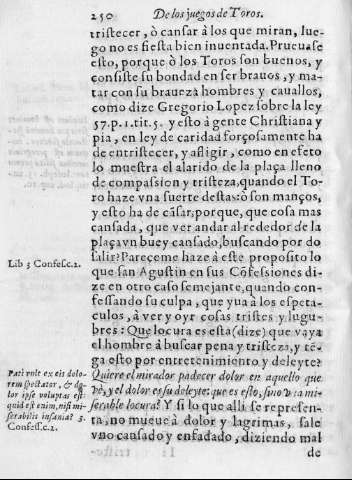 250 De los juegos de Toros.
tristecer, ò cansar à los que miran, lue-
go no es fiesta bien inuentada. Prueuase
esto, porque ò los Toros son buenos, y
consiste su bondad en ser brauos, y ma-
tar con su braueza hombres y cauallos,
como dize Gregorio Lopez sobre la ley
57. p. 1. tit. 5. y esto à gente Christiana y
pia, en ley de caridad forçosamente ha
de entristecer, y afligir, como en efeto
lo muestra el alarido de la plaça lleno
de compassion y tristeza, quando el To-
ro haze vna suerte destas: ò son mãços,
y esto ha de cãsar, porque, que cosa mas
cansada, que ver andar al rededor de la
plaça vn buey cansado, buscando por do
salir? Pareceme haze à este proposito lo
que san Agustin en sus Cõfessiones di-
ze en otro caso semejante, quando con-
fessando su culpa, que yua à los espeta-
culos, à ver y oyr cosas tristes y lugu-
bres: Que locura es esta (dize) que vaya
el hombre à buscar pena y tristeza, y tẽ-
ga esto por entretenimiento y deleyte?
Quiere el mirador padecer dolor en aquello que
vè, y el dolor es su deleyte: que es esto, sino vna mi-
serable locura? Y si lo que alli se represen-
ta, no mueue à dolor y lagrimas, sale
vno cansado y enfadado, diziendo mal
de
Lib 3 Confess. c. 2.
Pati vult ex eis dolo-
rem spectator, & do-
lor ipse voluptas est:
quid est enim, nisi mi-
serabilis insania? 3.
Confess. c. 2.